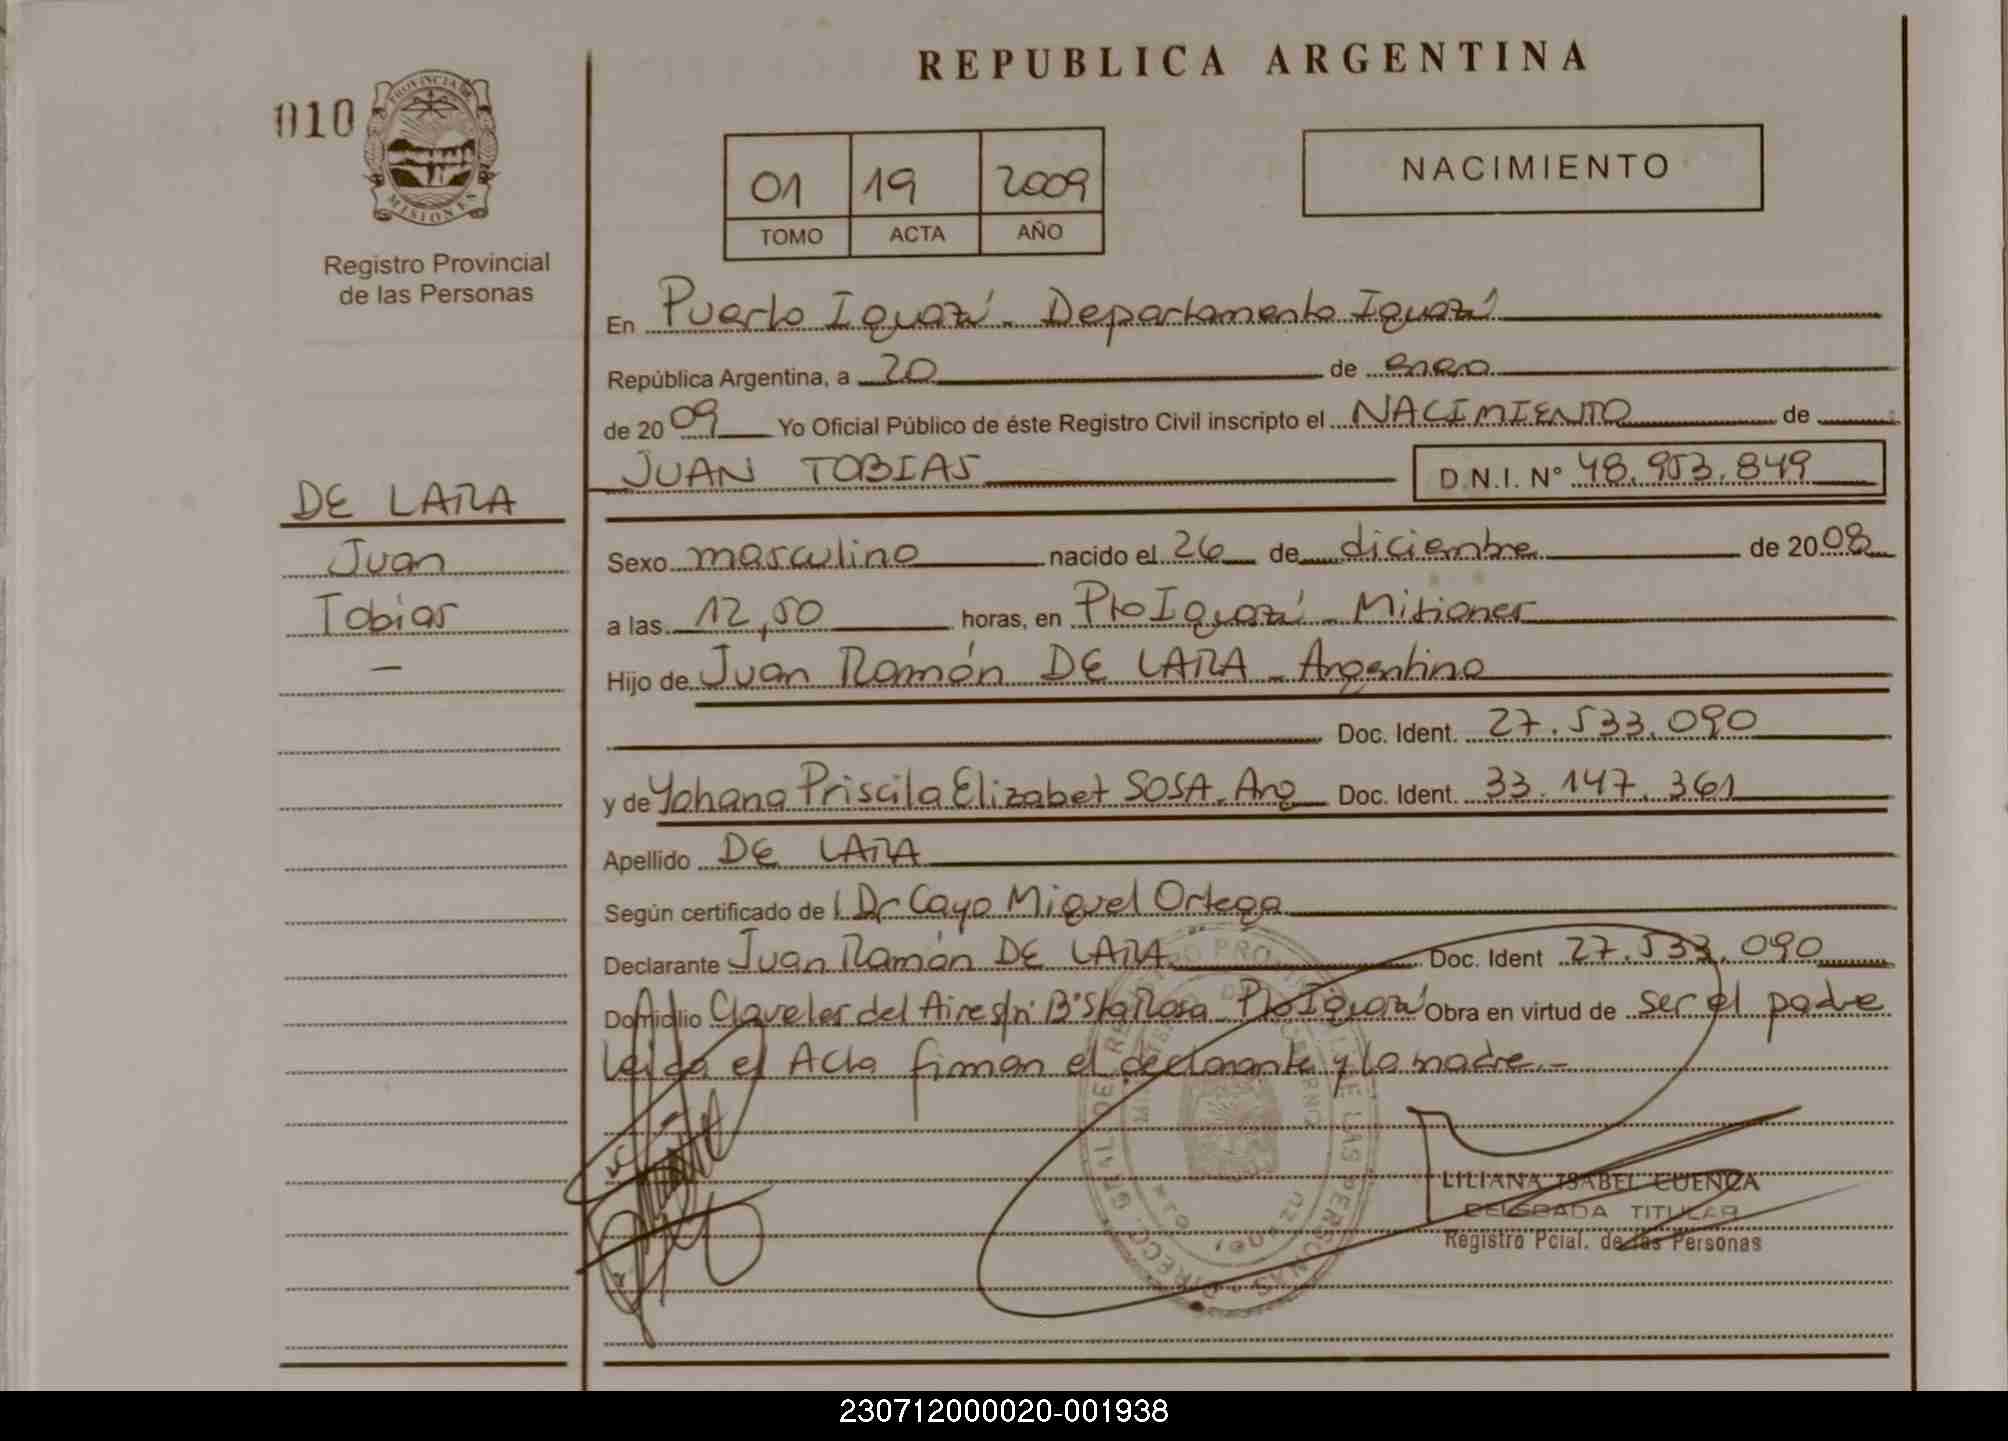 REPUBLICA ARGENTINA
010
PROVINCIA DE
MISIONES
Registro Provincial
de las Personas
01 19 2009
TOMO ACTA AÑO
NACIMIENTO
En Puerto Iguazú - Departamento Iguazú
República Argentina, a 20 de enero
de 2009 Yo Oficial Público de éste Registro Civil inscripto el NACIMIENTO de
JUAN TOBIAS D.N.I. Nº 48.953.849
DE LARA
Juan
Tobias
Sexo masculino nacido el 26 de diciembre de 2008
a las 12,50 horas, en Pto Iguazú - Misiones
Hijo de Juan Ramón DE LARA - Argentino
Doc. Ident. 27.533.090
y de Yohana Priscila Elizabet SOSA - Arg Doc. Ident. 33.147.361
Apellido DE LARA
Según certificado de l Dr Cayo Miguel Ortega
Declarante Juan Ramón DE LARA Doc. Ident 27.533.090
Domicilio Claveles del Aire s/n B° Sta Rosa Pto Iguazú Obra en virtud de ser el padre
Leida el Acta firman el declarante y la madre.-
LILIANA ISABEL CUENCA
DELEGADA TITULAR
Registro Pcial. de las Personas
230712000020-001938